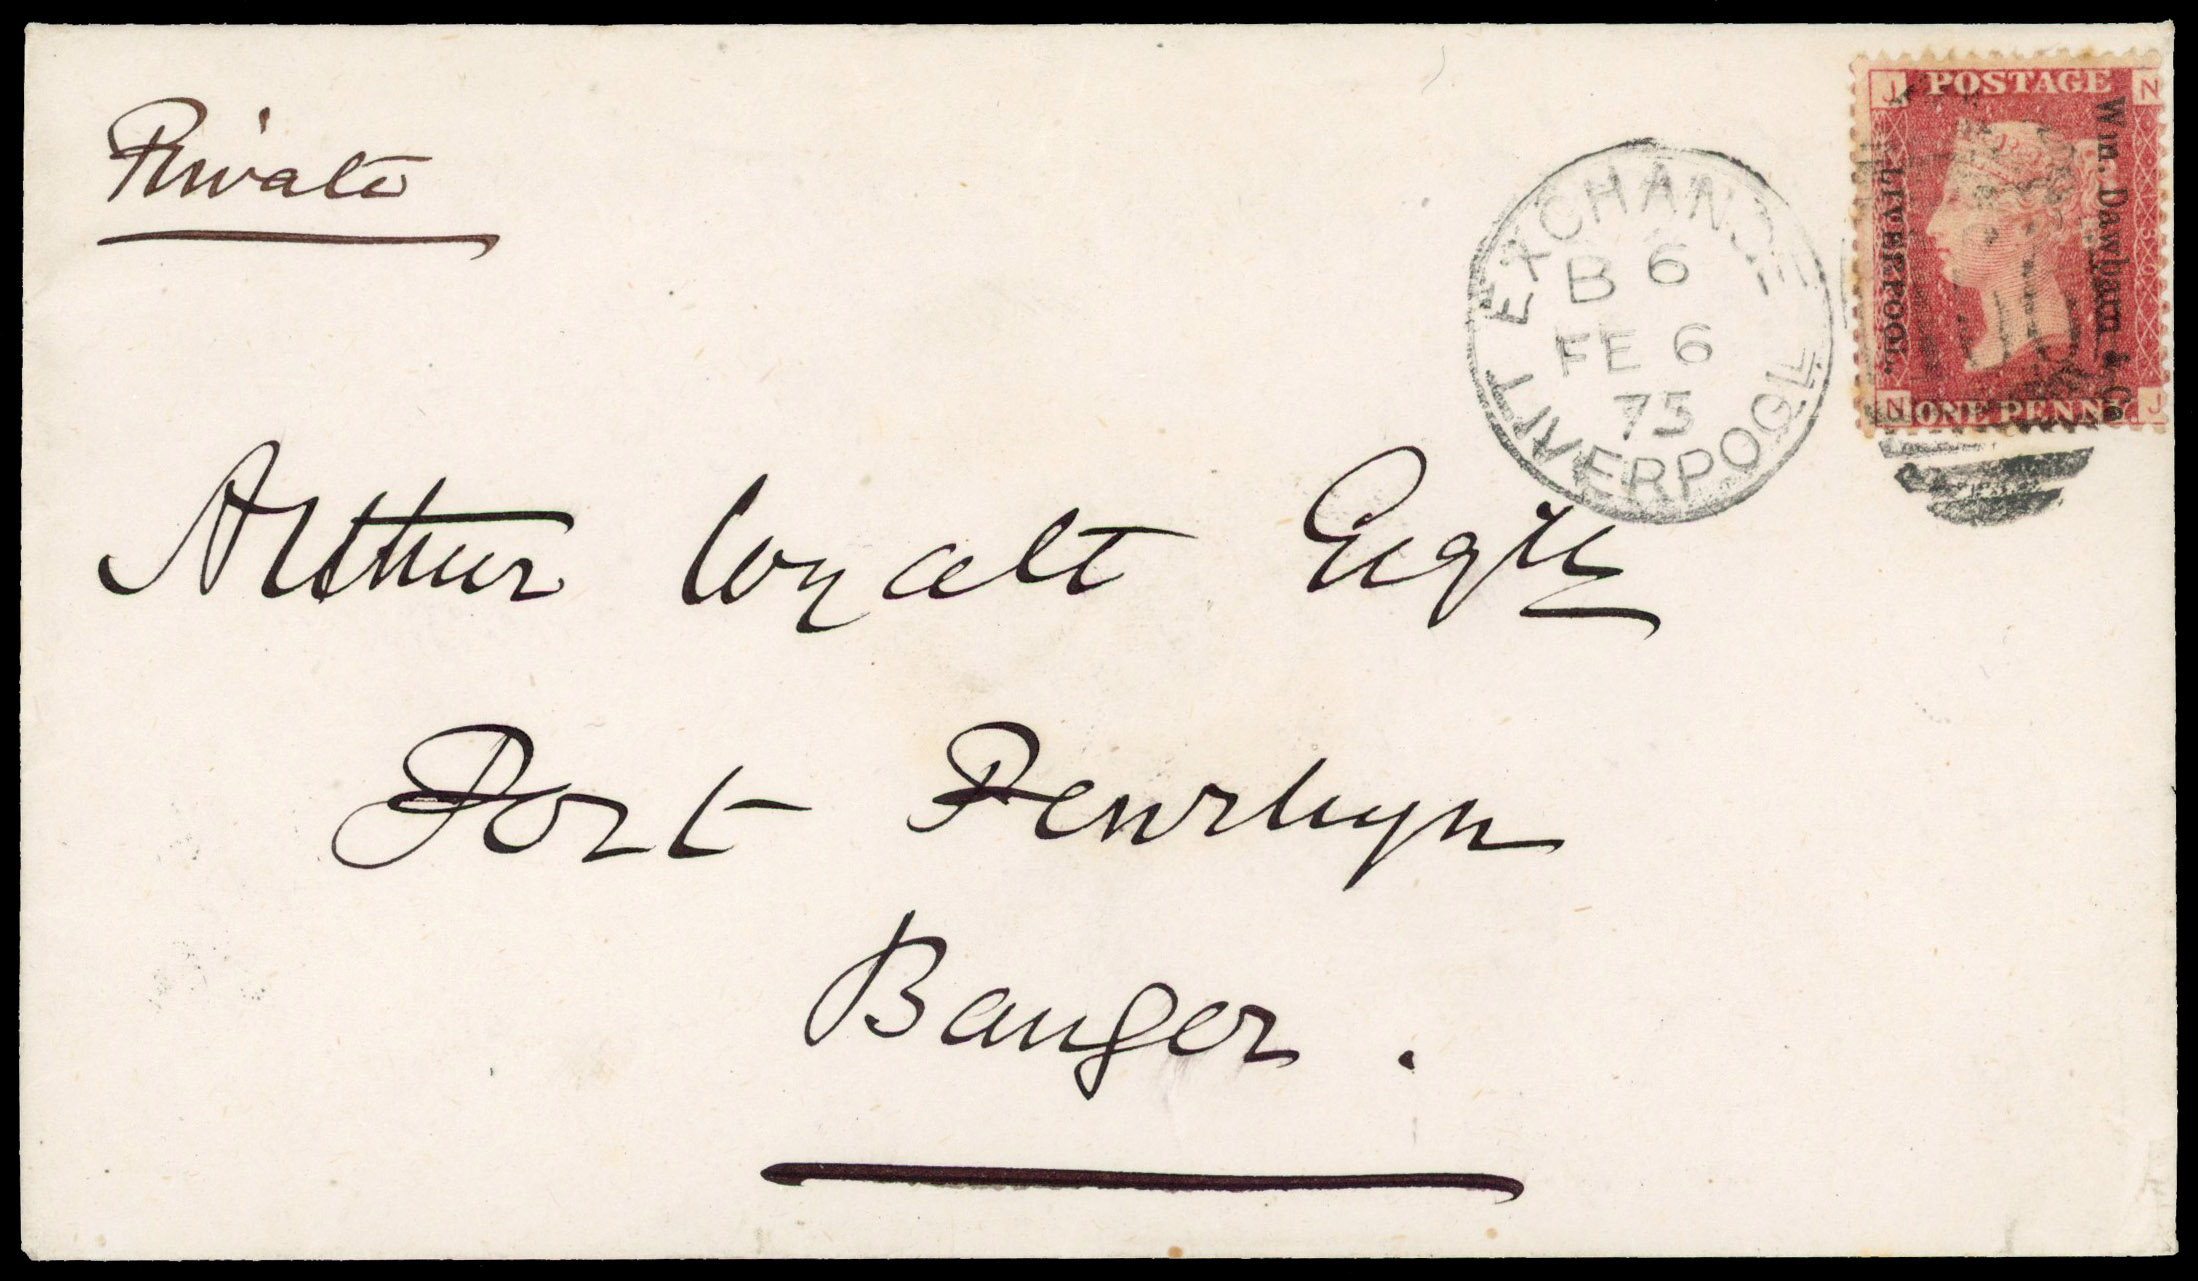 Private
EXCHANGE
B 6
FE 6
75
LIVERPOOL
J POSTAGE N
Wm. Dawbarn & Co
LIVERPOOL.
N ONE PENNY J
Arthur Wyatt Esqre
Port Penrhyn
Bangor.